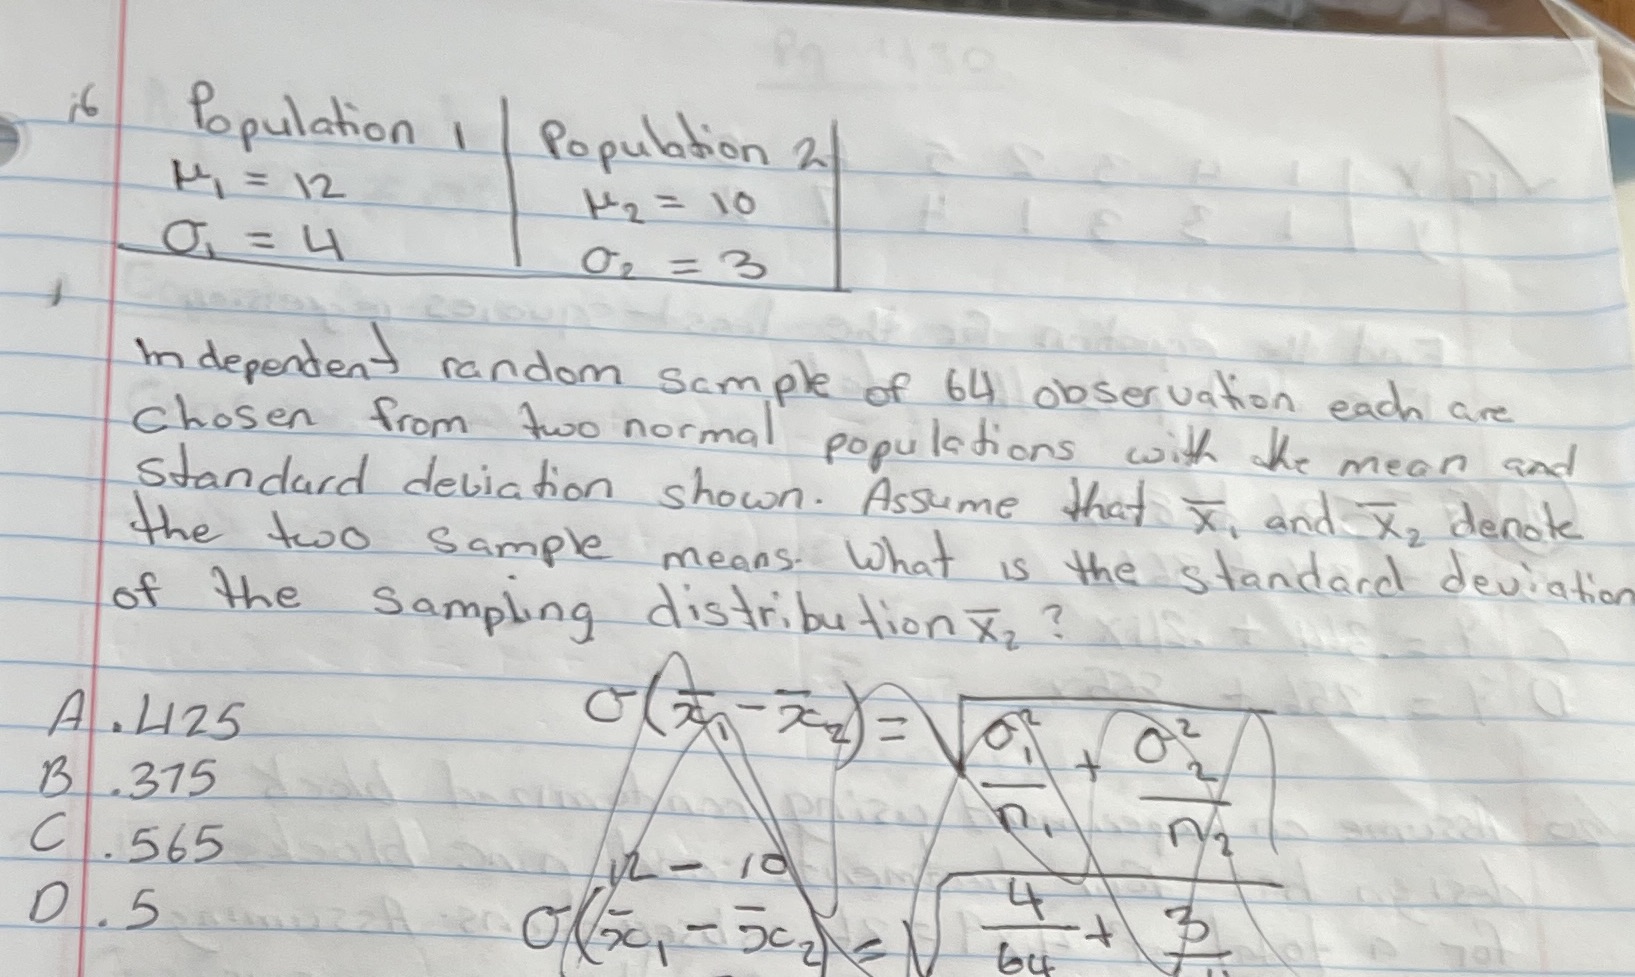 16 Population 1 | Population 2
μ₁ = 12 | μ₂ = 10
σ₁ = 4 | σ₂ = 3
independent random sample of 64 observation each are
chosen from two normal populations with the mean and
standard deviation shown. Assume that x̄₁ and x̄₂ denote
the two sample means. What is the standard deviation
of the sampling distribution x̄₂ ?
A .425
B .375
C .565
D .5
σ(x̄₁ - x̄₂) = √(σ₁²/n₁ + σ₂²/n₂)
12 - 10
σ(x̄₁ - x̄₂) = √(4/64 + 3/